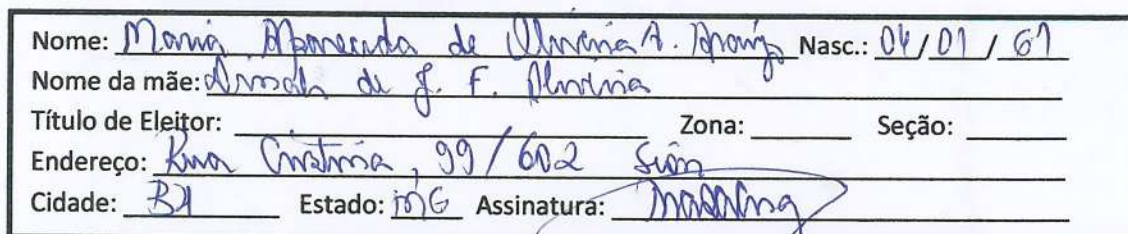 Nome: Maria Aparecida de Oliveira A. Araújo Nasc.: 04/01/61
Nome da mãe: de J. F. Oliveira
Título de Eleitor: Zona: Seção:
Endereço: Rua Cristina, 99/602 Sion
Cidade: BH Estado: MG Assinatura: